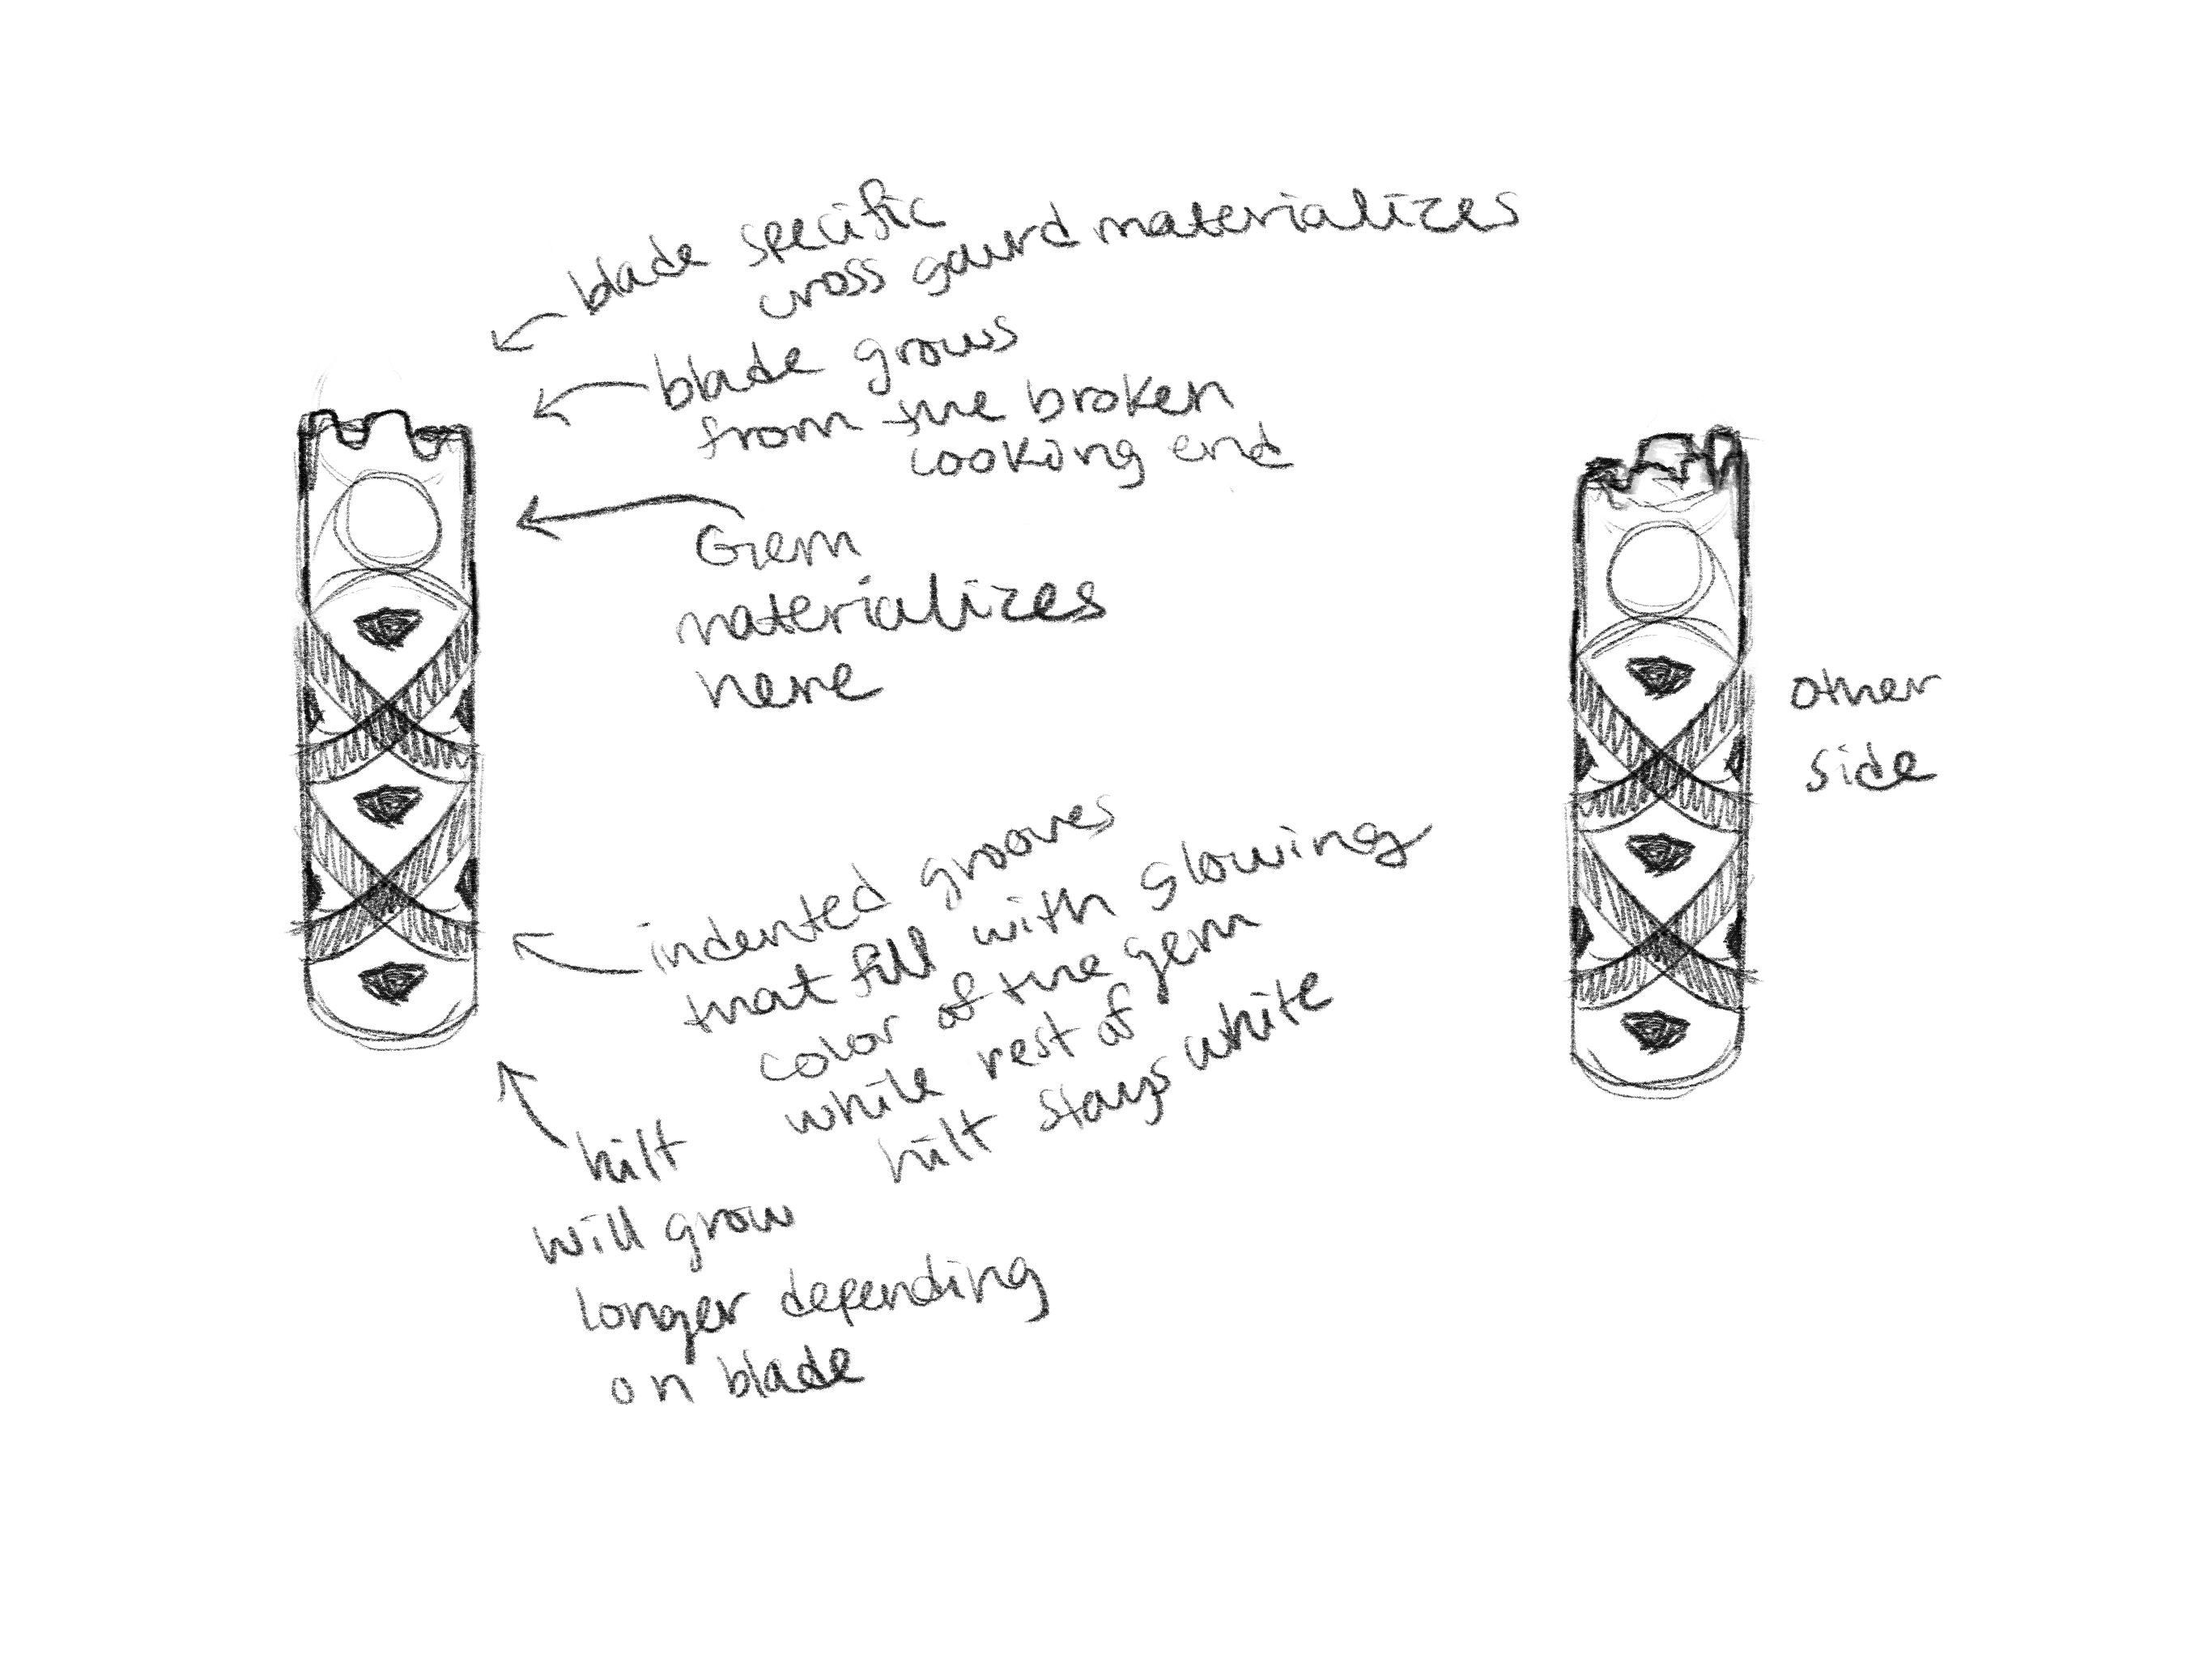 blade specific
cross gaurd materializes
blade grows
from the broken
looking end
Gem
materializes
here
other
side
indented grooves
that fill with glowing
color of the gem
while rest of
hilt stays white
hilt
will grow
longer depending
on blade